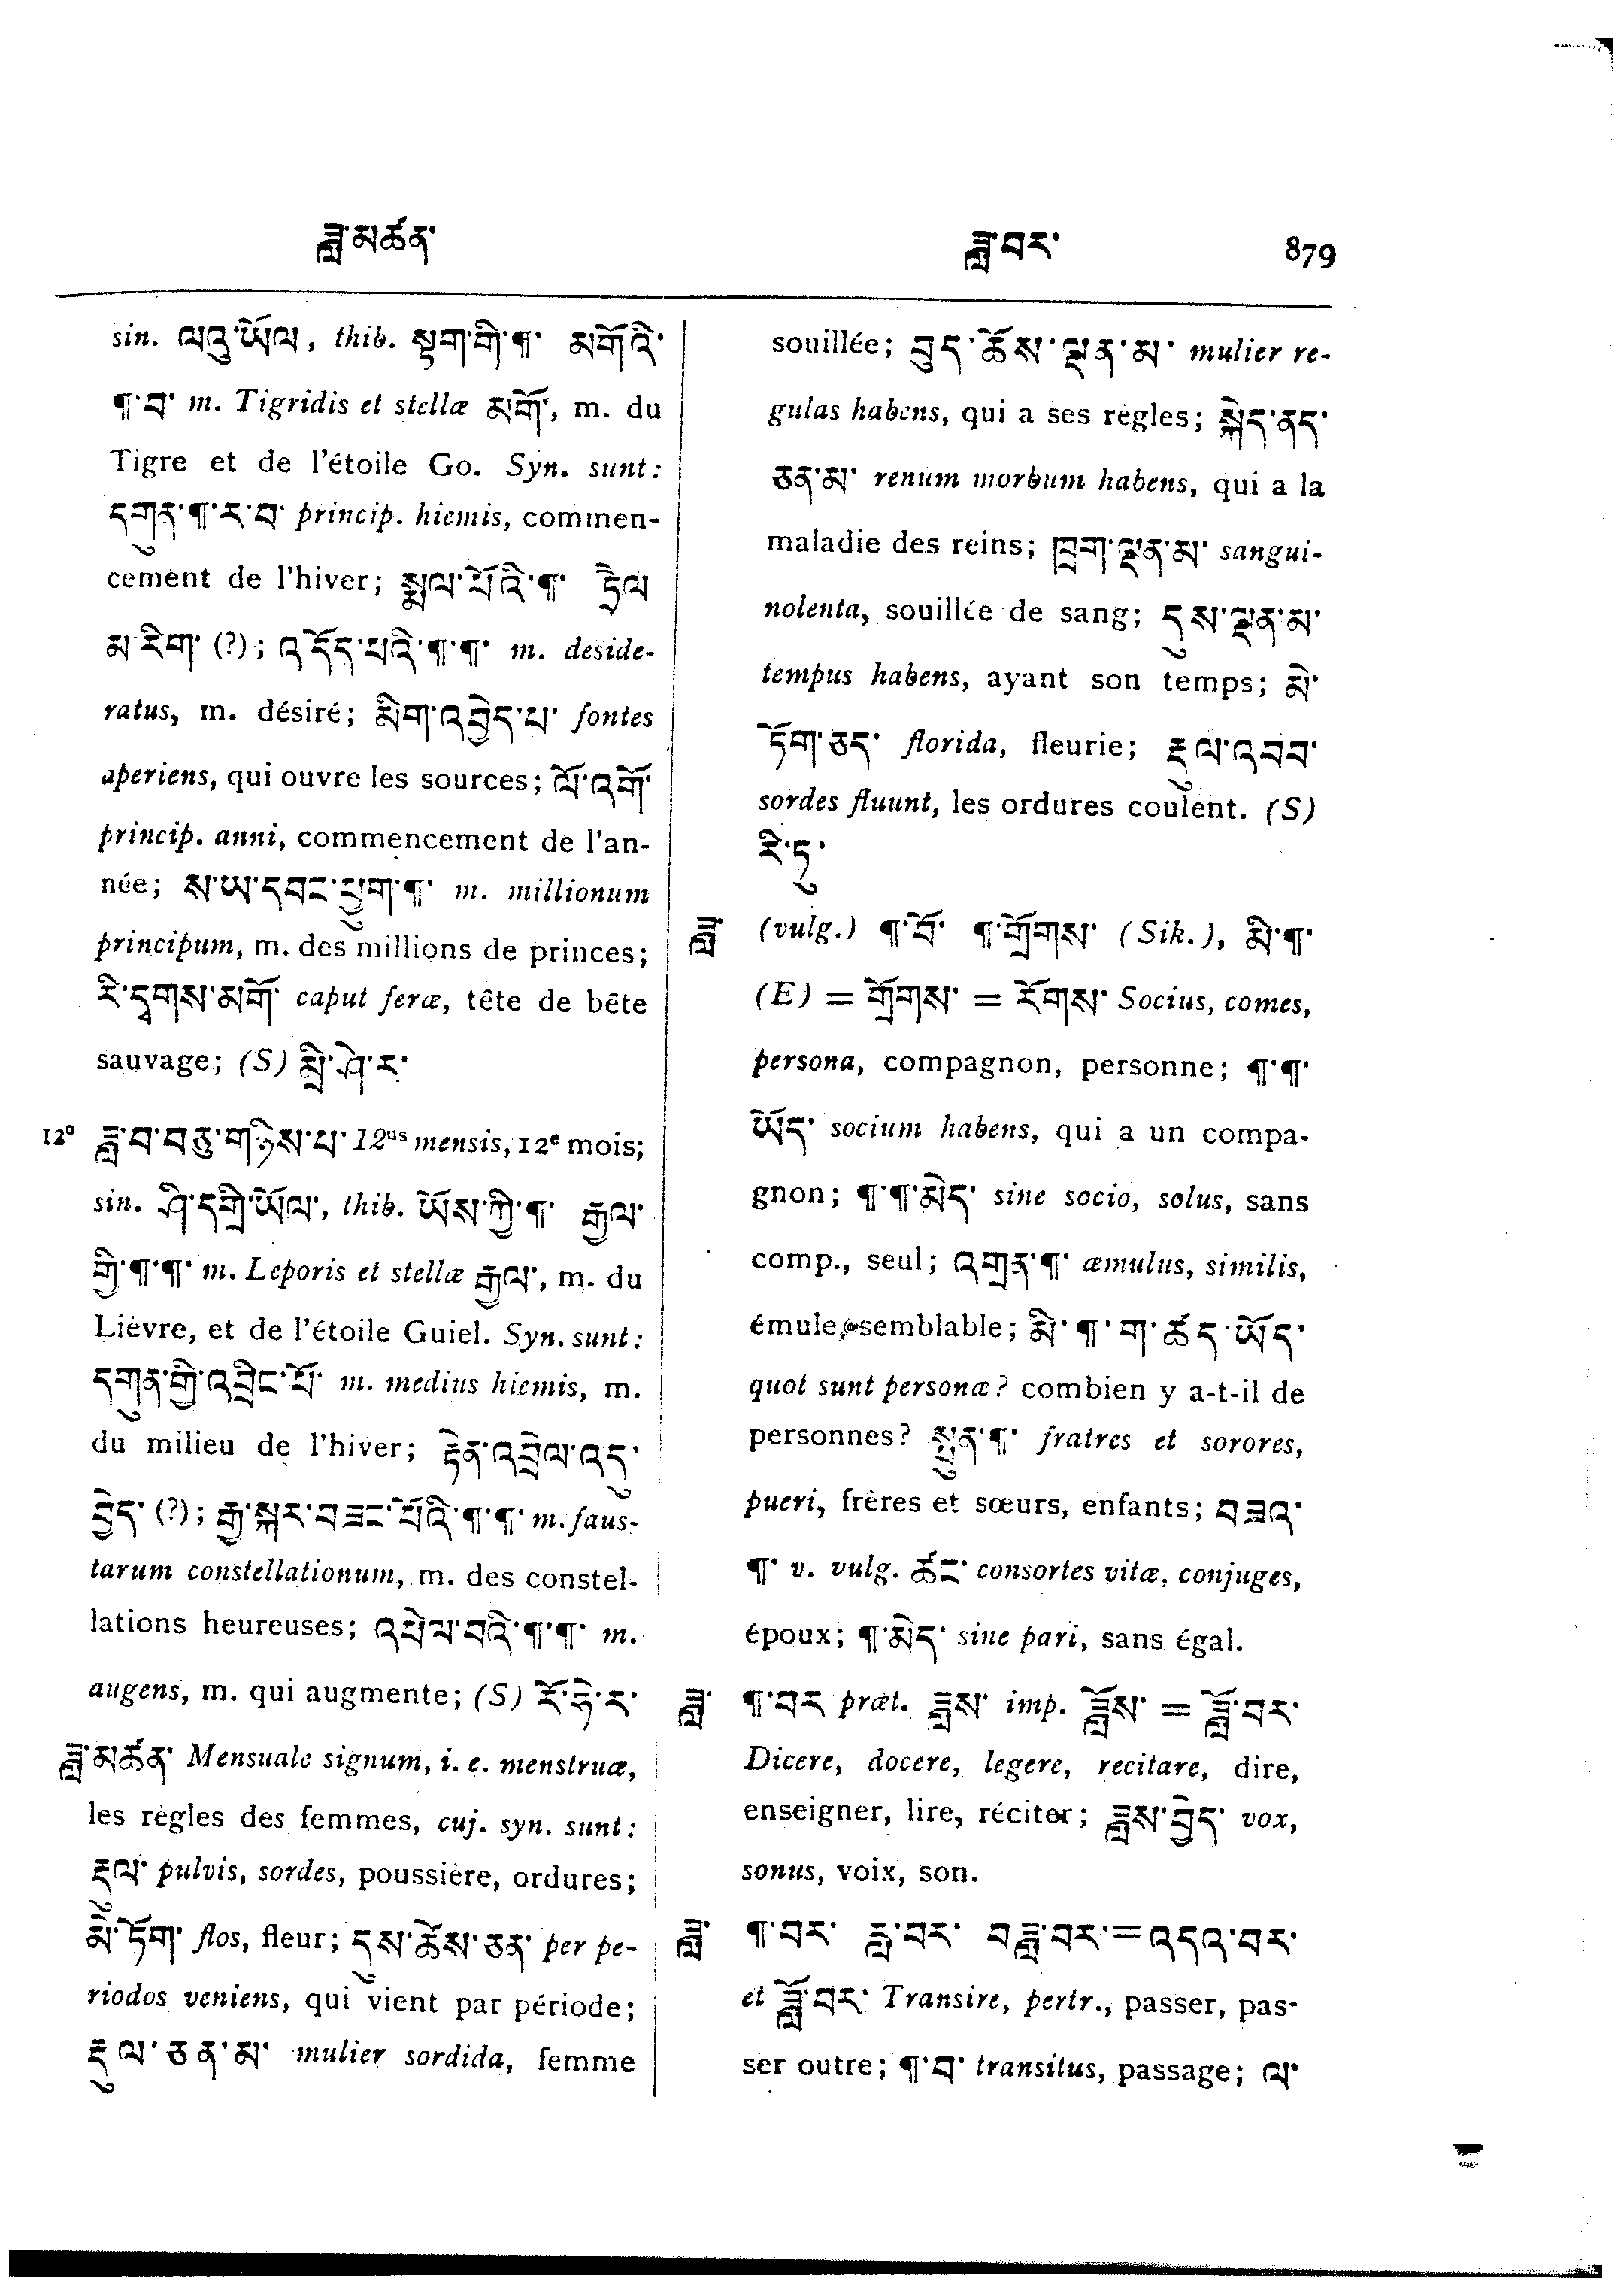 ཟླ་མཚན་
ཟླ་བར་ 879
sin. ལའུ་ཡོལ, thib. སྟག་གི་¶་ མགོའི་
¶་བ་ m. Tigridis et stellæ མགོ་, m. du
Tigre et de l'étoile Go. Syn. sunt:
དགུན་¶་ར་བ་ princip. hiemis, commen-
cement de l'hiver; སྨལ་པོའི་¶་ ཏྲེལ
མ་རིག་ (?); འདོད་པའི་¶་¶་ m. deside-
ratus, m. désiré; མིག་འབྱེད་པ་ fontes
aperiens, qui ouvre les sources; ལོ་འགོ་
princip. anni, commencement de l'an-
née; ས་ཡ་དབང་ཕྱུག་¶་ m. millionum
principum, m. des millions de princes;
རི་དྭགས་མགོ་ caput feræ, tête de bête
sauvage; (S) མྲི་ཤེ་ར་
12º ཟླ་བ་བཅུ་གཉིས་པ་ 12us mensis, 12e mois;
sin. ཤི་དགྲི་ཡོལ་, thib. ཡོས་ཀྱི་¶་ རྒྱལ་
གྱི་¶་¶་ m. Leporis et stellæ རྒྱལ་, m. du
Lièvre, et de l'étoile Guiel. Syn. sunt:
དགུན་གྱི་འབྲིང་པོ་ m. medius hiemis, m.
du milieu de l'hiver; རྟེན་འབྲེལ་འདུ་
བྱེད་ (?); རྒྱ་སྐར་བཟང་པོའི་¶་¶་ m. faus-
tarum constellationum, m. des constel-
lations heureuses; འཕེལ་བའི་¶་¶་ m.
augens, m. qui augmente; (S) རོ་ཧེ་ར་
ཟླ་མཚན་ Mensuale signum, i. e. menstruæ,
les règles des femmes, cuj. syn. sunt:
རྡུལ་ pulvis, sordes, poussière, ordures;
མེ་ཏོག་ flos, fleur; དུས་ཆོས་ཅན་ per pe-
riodos veniens, qui vient par période;
རྡུལ་ཅན་མ་ mulier sordida, femme
souillée; བུད་ཆོས་ལྡན་མ་ mulier re-
gulas habens, qui a ses règles; སྐེད་ནད་
ཅན་མ་ renum morbum habens, qui a la
maladie des reins; ཁྲག་ལྡན་མ་ sangui-
nolenta, souillée de sang; དུས་ལྡན་མ་
tempus habens, ayant son temps; མེ་
ཏོག་ཅད་ florida, fleurie; རྡུལ་འབབ་
sordes fluunt, les ordures coulent. (S)
རི་ཏུ་
ཟླ་ (vulg.) ¶་བོ་ ¶་གྲོགས་ (Sik.), མི་¶་
(E) = གྲོགས་ = རོགས་ Socius, comes,
persona, compagnon, personne; ¶་¶་
ཡོད་ socium habens, qui a un compa-
gnon; ¶་¶་མེད་ sine socio, solus, sans
comp., seul; འགྲན་¶་ æmulus, similis,
émule, semblable; མི་¶་ག་ཚད་ཡོད་
quot sunt personæ? combien y a-t-il de
personnes? སྤུན་¶་ fratres et sorores,
pueri, frères et sœurs, enfants; བཟའ་
¶་ v. vulg. ཚང་ consortes vitæ, conjuges,
époux; ¶་མེད་ sine pari, sans égal.
ཟླ་ ¶་བར præt. ཟླས་ imp. ཟློས་ = ཟློ་བར་
Dicere, docere, legere, recitare, dire,
enseigner, lire, réciter; ཟླས་བྱེད་ vox,
sonus, voix, son.
ཟླ་ ¶་བར་ རླ་བར་ བཟླ་བར་ = འདའ་བར་
et ཟློ་བར་ Transire, pertr., passer, pas-
ser outre; ¶་བ་ transitus, passage; ལ་